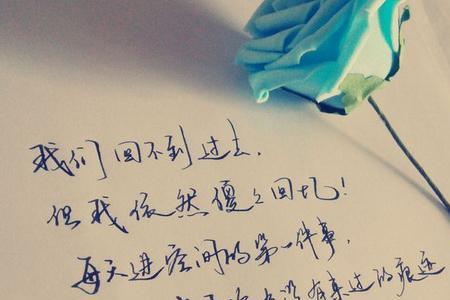 我们回不到过去，
但我依然傻々回忆！
每天进空间的第一件事，
没有来过的痕迹